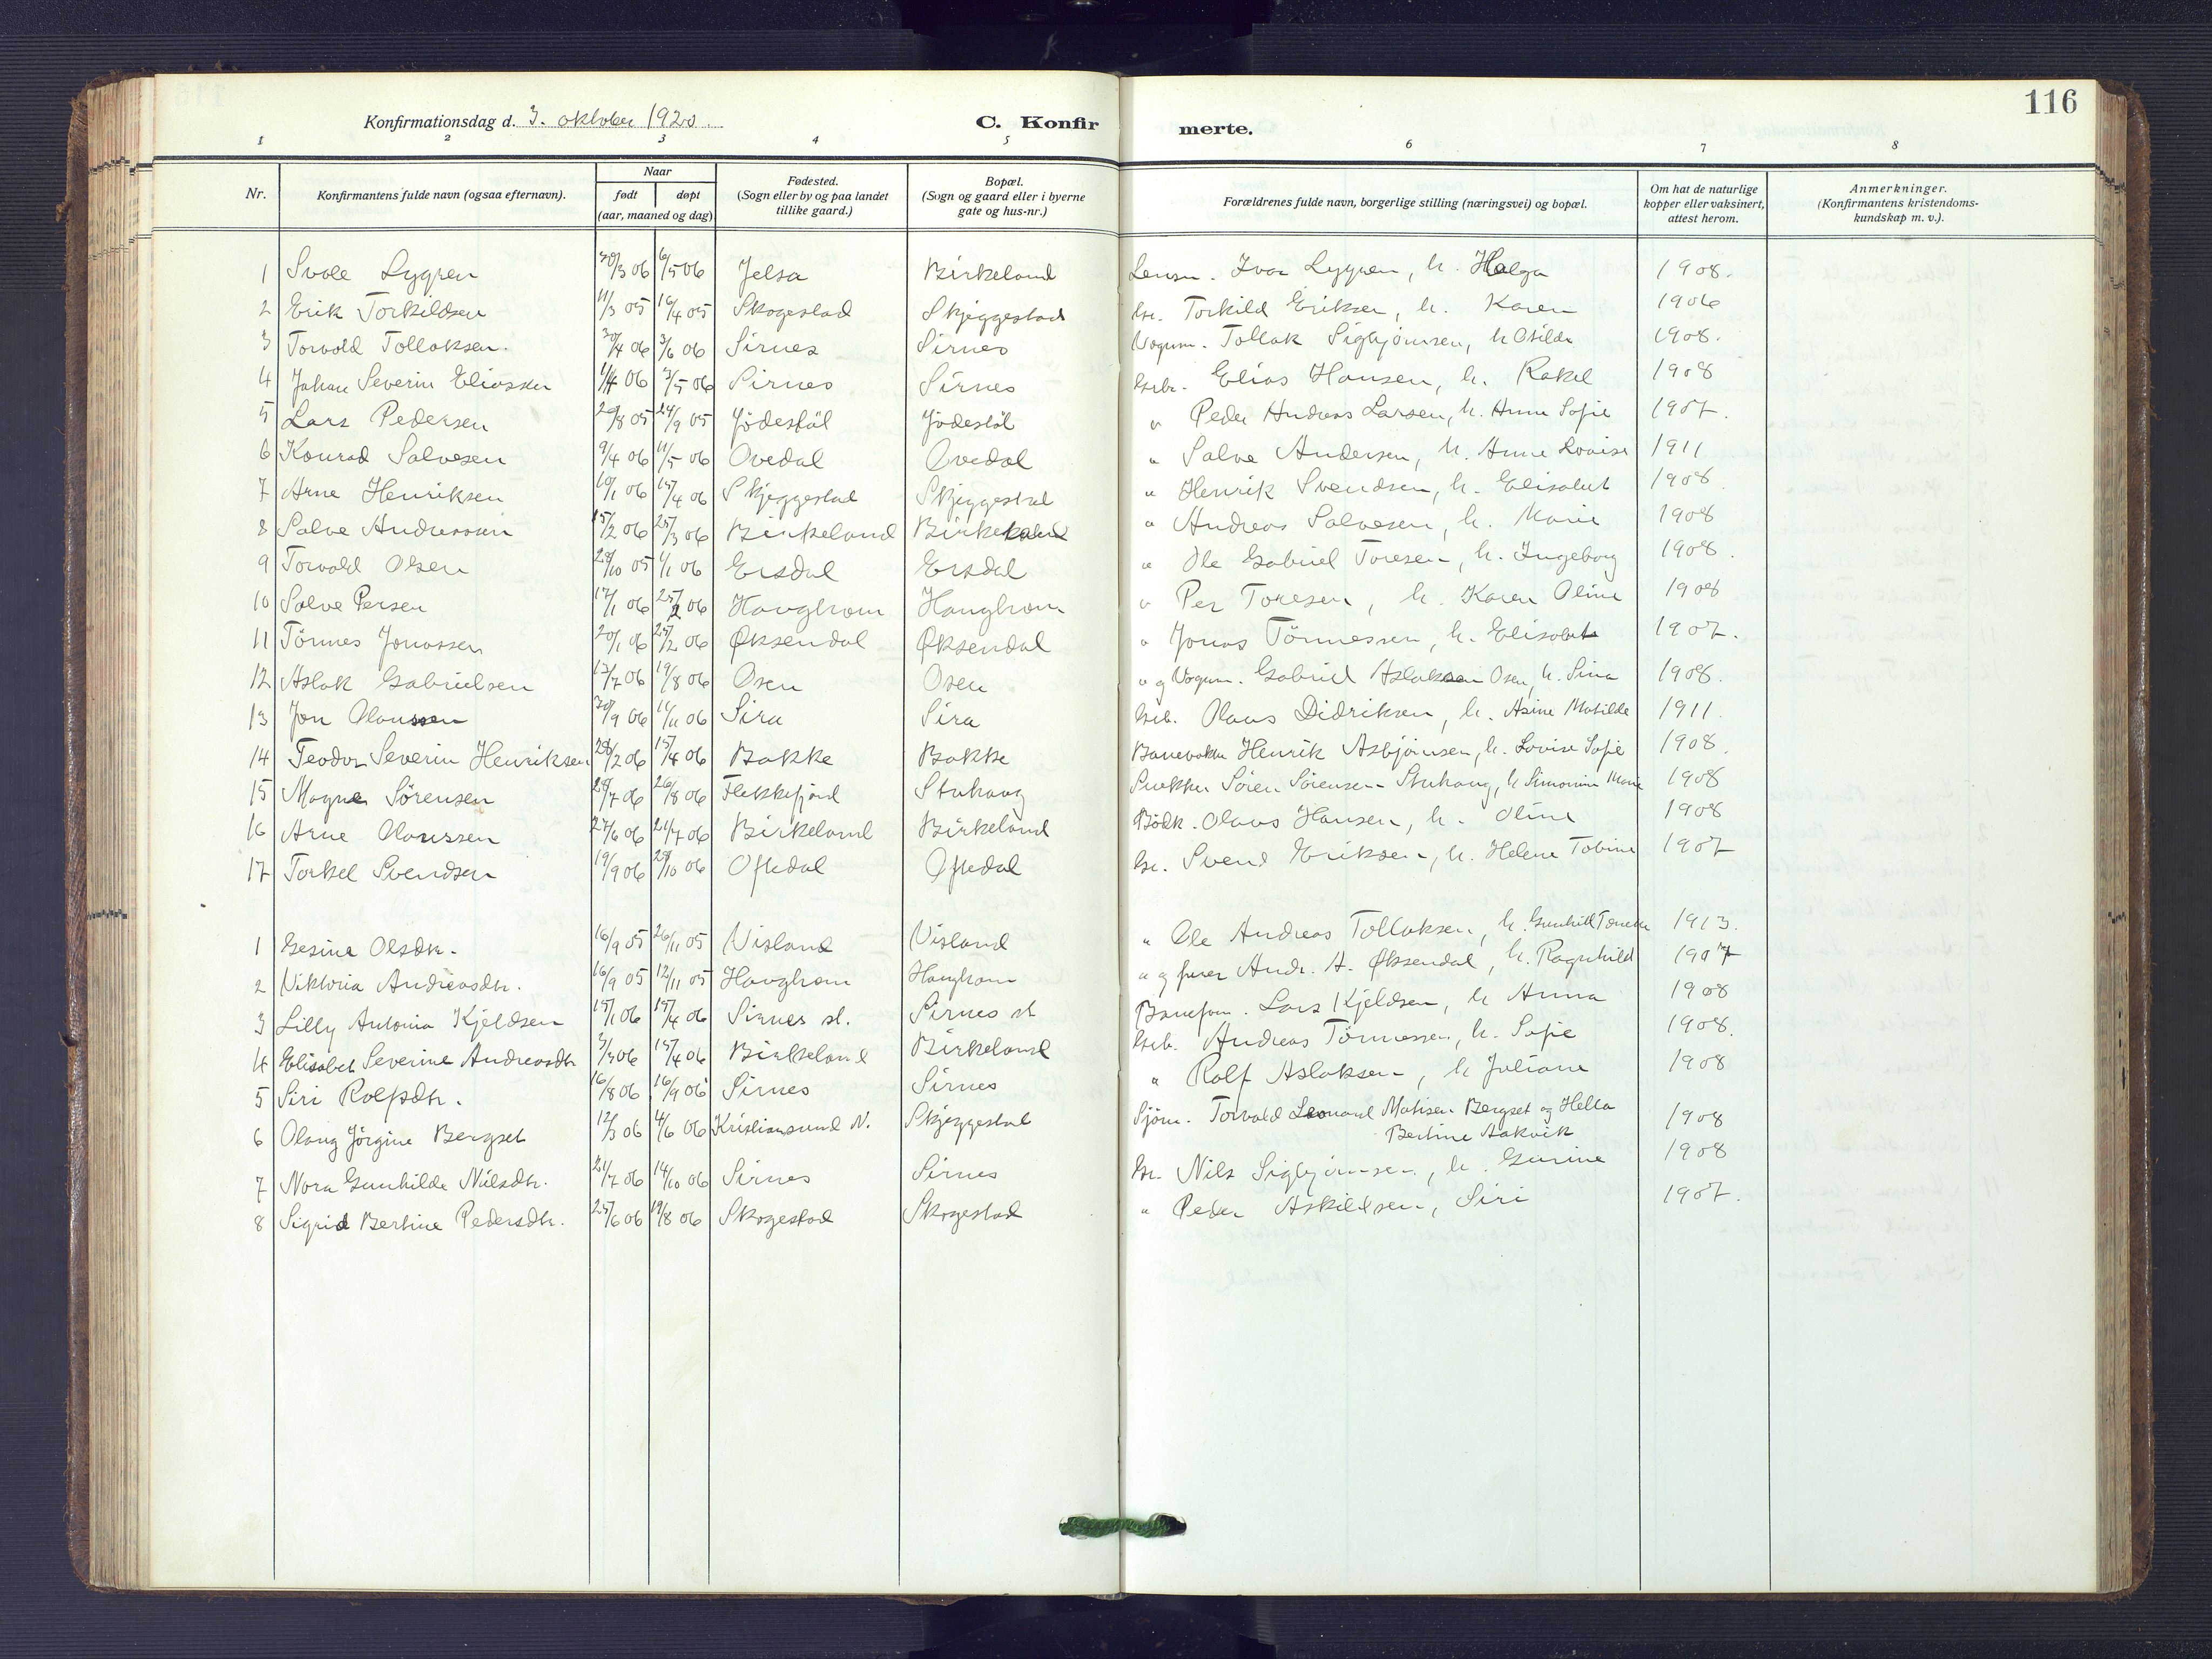 116
Konfirmationsdag d. 3. oktober 1920.
C. Konfirmerte.
1 2 3 4 5 6 7 8
Nr. Konfirmantens fulde navn (ogsaa efternavn). Naar født døpt (aar, maaned og dag) Fødested. (Sogn eller by og paa landet tillike gaard.) Bopæl. (Sogn og gaard eller i byerne gate og hus-nr.) Forældrenes fulde navn, borgerlige stilling (næringsvei) og bopæl. Om hat de naturlige kopper eller vaksinert, attest herom. Anmerkninger. (Konfirmantens kristendoms-kundskap m. v.).
1 Svale Lygren 30/3 06 6/5 06 Jelsa Birkeland Lensm. Ivar Lygren, h. Helga 1908.
2 Erik Torkildsen 11/3 05 16/4 05 Skogestad Skjeggestad Br. Torkild Eriksen, h. Karen 1906
3 Torvald Tollaksen. 30/4 06 3/6 06 Sirnes Sirnes Vognm. Tollak Sigbjørnsen, h Otilde 1908.
4 Johan Severin Eliassen 1/4 06 3/5 06 Sirnes Sirnes Grb. Elias Hansen, h. Rakel 1908
5 Lars Pedersen 29/8 05 24/9 05 Jödestöl Jödestöl " Peder Andreas Larsen, h. Anne Sofie 1907.
6 Konrad Salvesen 9/4 06 11/5 06 Ovedal Ovedal " Salve Andersen, h. Anne Lovise 1911
7 Arne Henriksen 10/1 06 15/4 06 Skjeggestad Skjeggestad " Henrik Svendsen, h. Elisabet 1908
8 Salve Andreassen 15/2 06 25/3 06 Birkeland Birkeland " Andreas Salvesen, h. Marie 1908
9 Torvald Olsen 28/10 05 1/1 06 Ersdal Ersdal " Ole Gabriel Toresen, h. Ingeborg 1908.
10 Salve Persen 17/1 06 25/2 06 Haughom Haughom " Per Toresen, h. Karen Oline 1908
11 Tönnes Jonassen 20/1 06 25/2 06 Øksendal Øksendal " Jonas Tönnessen, h. Elisabet 1907.
12 Aslak Gabrielsen 17/7 06 19/8 06 Osen Osen " og Vognm. Gabriel Aslaksen Osen, h. Sina 1908.
13 Jon Olaussen 30/9 06 11/11 06 Sira Sira Grb. Olaus Didriksen, h. Asine Matilde 1911.
14 Teodor Severin Henriksen 28/2 06 15/4 06 Bakke Bakke Banevokter Henrik Asbjörnsen, h. Lovise Sofie 1908.
15 Magne Sörensen 28/7 06 26/8 06 Flekkefjord Stuhaug Snekker Sören Sörensen Stuhaug, h Simonine Marie 1908
16 Arne Olaussen 27/6 06 21/7 06 Birkeland Birkeland Bödk. Olaus Hansen, h. Oline 1908
17 Torkel Svendsen 19/9 06 28/10 06 Oftedal Oftedal Br. Svend Eriksen, h. Helene Tobine 1907
1 Gesine Olsdtr. 16/9 05 26/11 05 Visland Visland " Ole Andreas Tollaksen, h. Gunhild 1913.
2 Viktoria Andreasdtr. 16/9 05 12/11 05 Haughom Haughom " og fører Andr. A. Øksendal, h. Ragnhild 1907
3 Lilly Antonia Kjeldsen 15/1 06 15/4 06 Sirnes st. Sirnes st Baneform. Lars Kjeldsen, h Anna 1908
4 Elisabet Severine Andreasdtr 3/3 06 15/4 06 Birkeland Birkeland Grb. Andreas Tönnessen, h. Sofie 1908.
5 Siri Rolfsdtr. 16/8 06 16/9 06 Sirnes Sirnes " Rolf Aslaksen, h Juliane 1908
6 Olaug Jörgine Bergset 12/3 06 4/6 06 Kristiansund N. Skjeggestad Sjöm. Torvald Leonard Matisen Bergset og Hella
Bertine Aakvik 1908
7 Nora Gunhilde Nilsdtr. 21/7 06 14/10 06 Sirnes Sirnes Br. Nils Sigbjörnsen, h. Gurine 1908
8 Sigrid Bertine Pedersdtr. 25/6 06 19/8 06 Skogestad Skogestad " Peder Askildsen, Siri 1907.